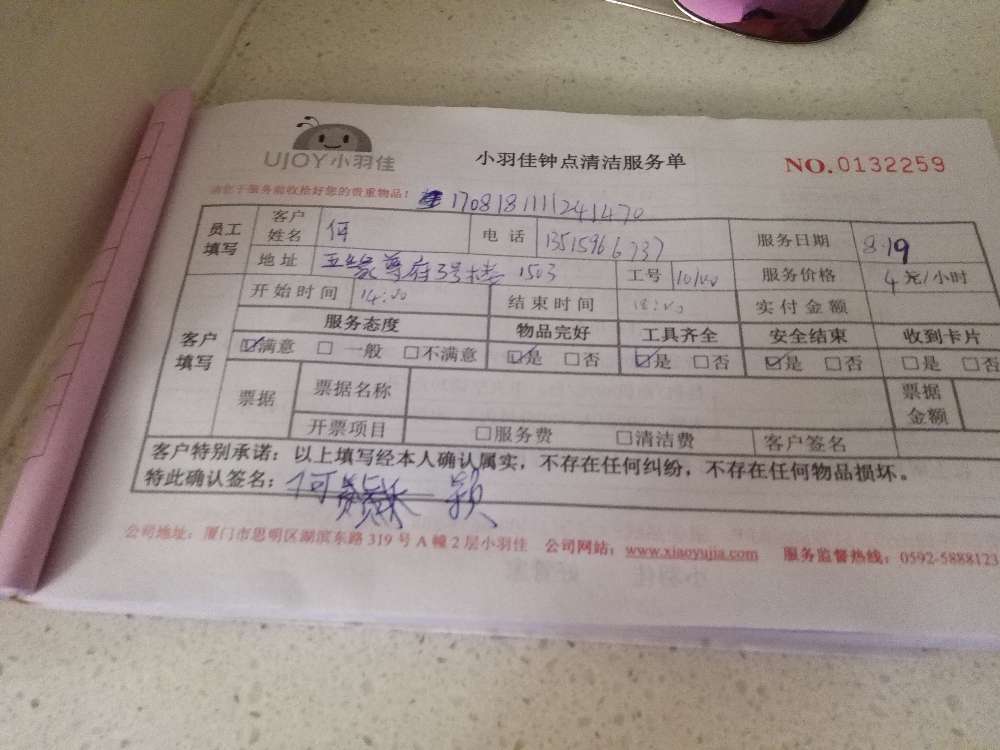 UJOY小羽佳
小羽佳钟点清洁服务单
NO.0132259
请您于服务前收拾好您的贵重物品!
1708181111241470
员工填写 客户姓名 何 电话 13515966737 服务日期 8.19
地址 五缘尊府3号楼 1503 工号 服务价格 4 元/小时
客户填写 开始时间 14:00 结束时间 18:00 实付金额
服务态度 物品完好 工具齐全 安全结束 收到卡片
☑满意 □一般 □不满意 ☑是 □否 ☑是 □否 ☑是 □否 □是 □否
票据 票据名称 票据金额
开票项目 □服务费 □清洁费 客户签名
客户特别承诺:以上填写经本人确认属实,不存在任何纠纷,不存在任何物品损坏。
特此确认签名:何 颖
公司地址:厦门市思明区湖滨东路319号A幢2层小羽佳 公司网站:www.xiaoyujia.com 服务监督热线:0592-5888123